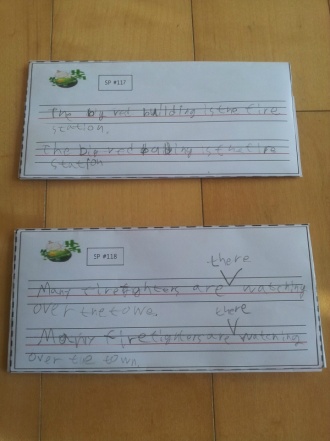 SP #117
The big red building is the fire
station.
The big red is the fire
station
SP #118
there
Many firefighters are watching
over the town.
there
Many firefighters are watching
over te town